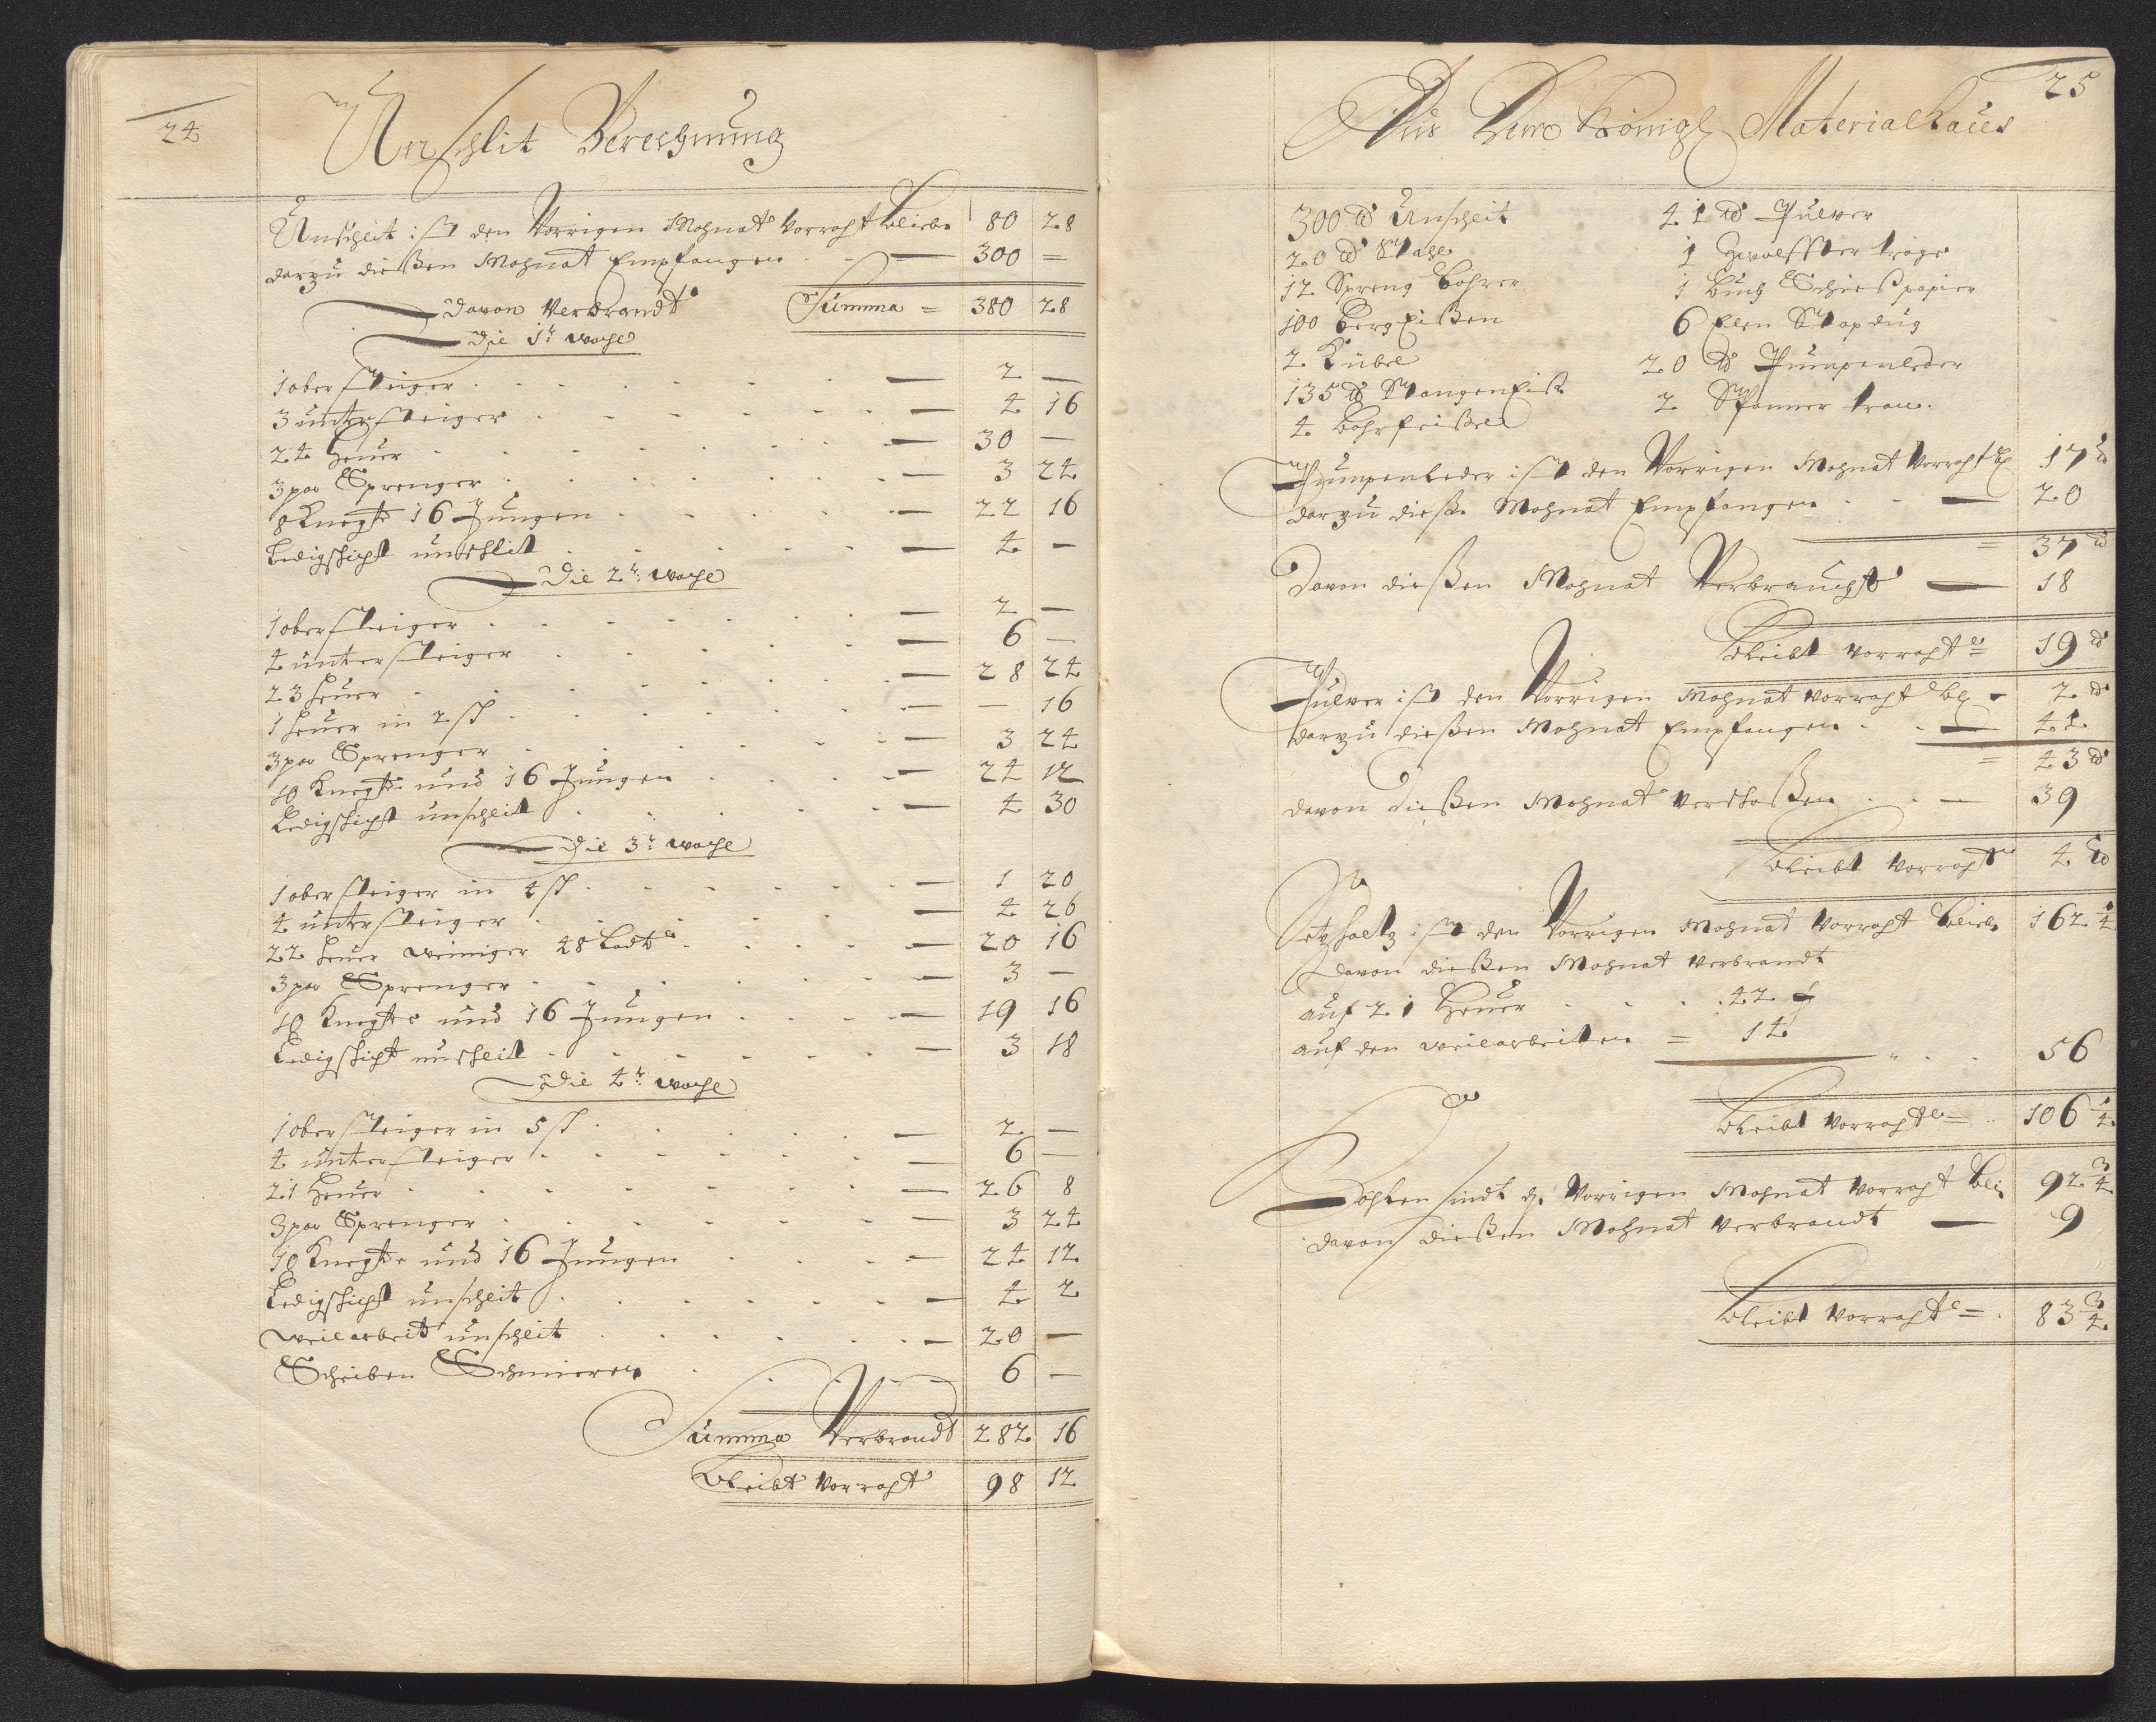 24
Unschlit Berechnung
Unschlit ist den Vorrigen Mohnat Vorraht blieb. 80 28
darzu dießen Mohnat Empfangen — 300 =
Davon Verbrandt Summa = 380 28
Die 1t woche
1 obersteiger — 2 —
3 untersteiger — 4 16
24 Heuer — 30 —
3 par Sprenger — 3 24
8 Knegte 16 Jungen — 22 16
Ledigschicht unschlit — 4 —
Die 2t: woche
1 obersteiger — 2 —
4 untersteiger — 6 —
23 heuer — 28 24
1 heuer in 2 sch — — 16
3 par Sprenger — 3 24
10 Knegte und 16 Jungen — 24 12
Ledigschicht unschlit — 4 30
Die 3t: woche
1 obersteiger in 4 sch — 1 20
4 untersteiger — 4 26
22 heuer weiniger 48 Lodt — 20 16
3 par Sprenger — 3 —
10 Knegte und 16 Jungen — 19 16
Ledigschicht unschlit — 3 18
Die 4t: woche
1 obersteiger in 5 sch — 2 —
4 untersteiger — 6 —
21 Heuer — 26 8
3 par Sprenger — 3 24
10 Knegte und 16 Jungen — 24 12
Ledigschicht unschlit — 4 2
weilarbeit unschlit — 20 —
Scheiben Schmieren — 6 —
Summa Verbrandt 282 16
Bleibt Vorraht 98 12
25
Aus Dem Königl Materialhaus
300 ℔ Unschleit 41 ℔ Pulver
20 ℔ Stahl 1 tröge
12 Spreng Bohrer 1 buch Schießpapier
100 Berg Eißen 6 Elen
2 Kübel 20 ℔ Pumpenleder
135 ℔ Stangen Eiß 2
4 Bohrfeißel
Pumpenleder ist den Vorrigen Mohnat Vorraht bl 17 ℔
darzu dieße Mohnat Empfangen — 20
= 37 ℔
Davon dießen Mohnat Verbraucht — 18
Bleibt Vorraht = 19 ℔
Pulver ist den Vorrigen Mohnat Vorraht bl — 2 ℔
darzu dießen Mohnat Empfangen — 41
= 43 ℔
davon dießen Mohnat verschoßen — 39
Bleibt Vorraht 4 ℔
Setzholtz ist den Vorrigen Mohnat Vorraht blieb 162 1/4
Davon dießen Mohnat Verbrandt
auf 21 Heuer 42
auf den weilarbeiten = 14
56
Bleibt Vorraht = 106 1/4
Kohlen sindt d. Vorrigen Mohnat Vorraht bli 92 3/4
davon dießen Mohnat Verbrandt — 9
Bleibt Vorraht = 83 3/4